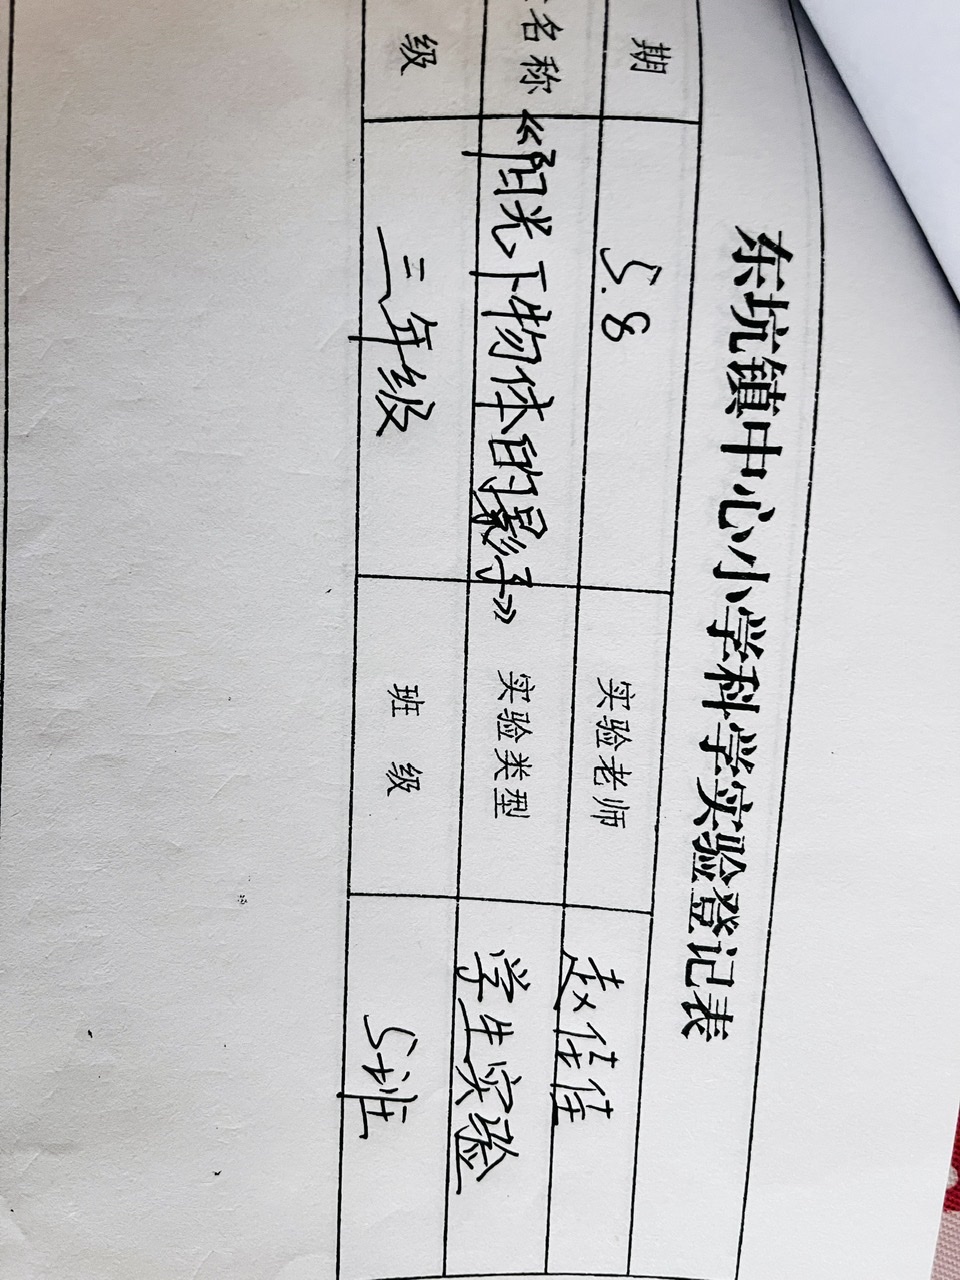 东坑镇中心小学科学实验登记表
期 5.8 实验老师 赵佳佳
名称 《阳光下物体的影子》 实验类型 学生实验
级 三年级 班级 5班